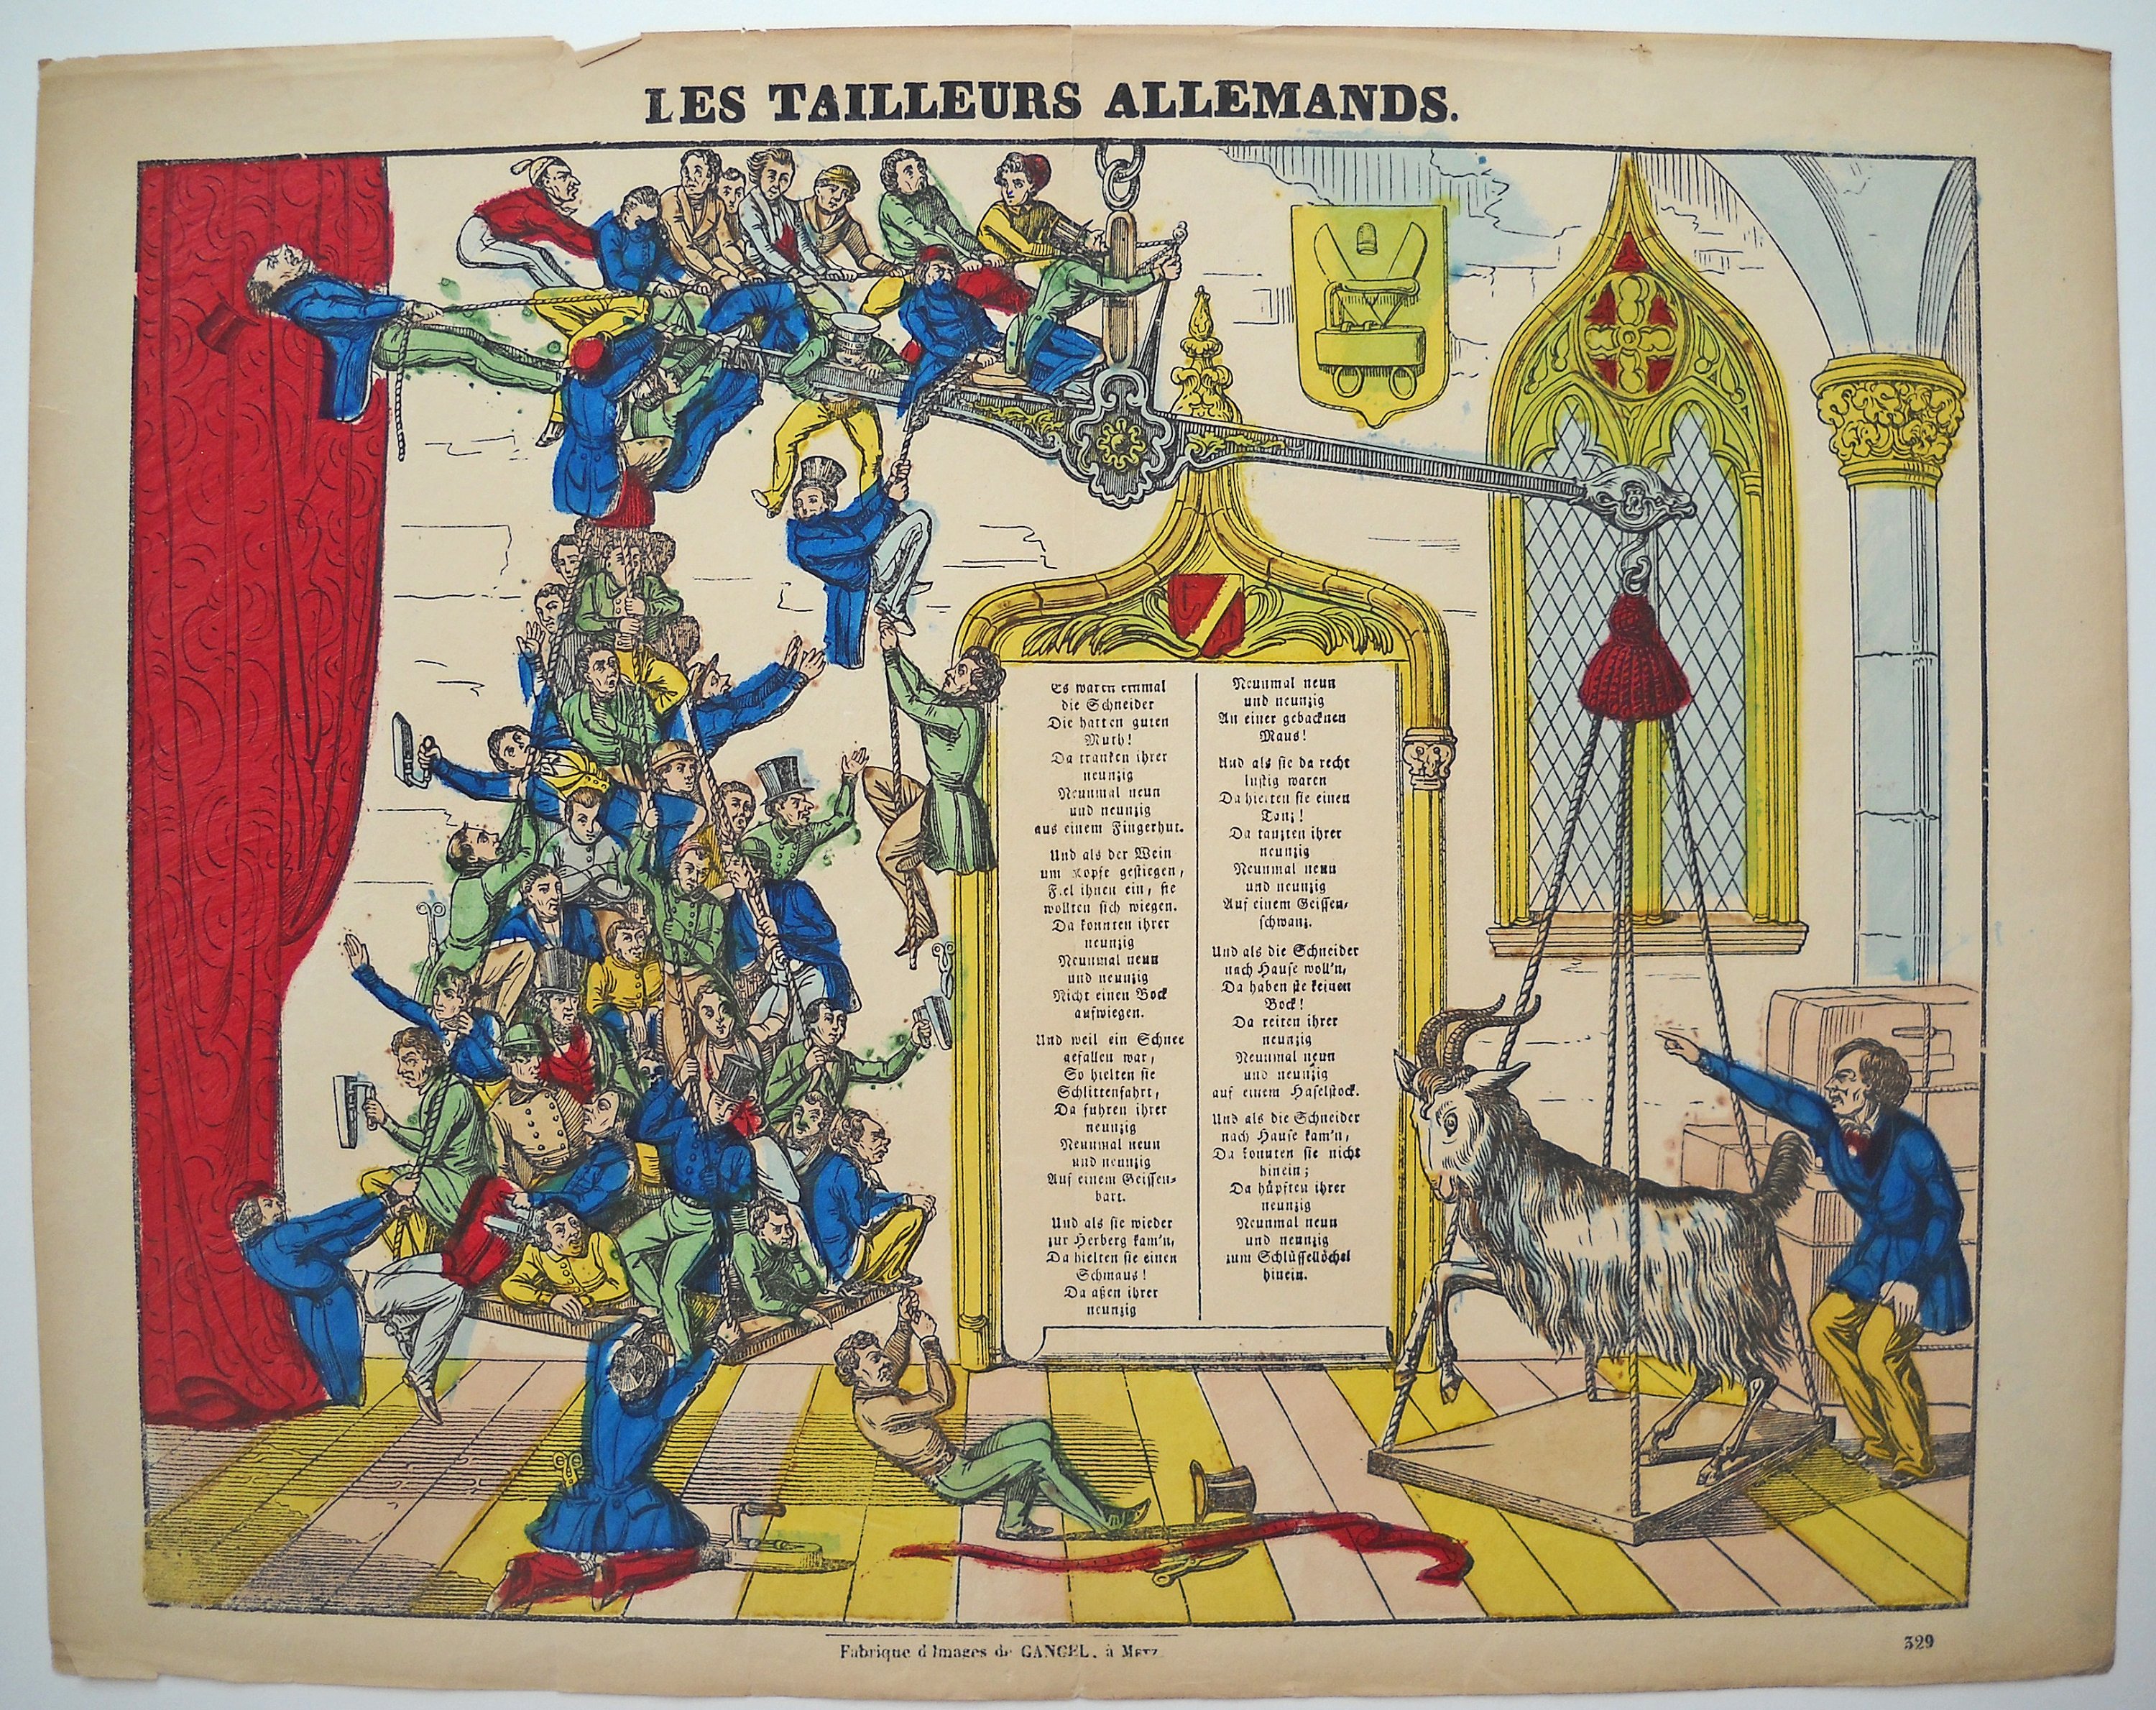 LES TAILLEURS ALLEMANDS.
Es waren einmal
die Schneider
Die hatten guten
Muth!
Da tranken ihrer
neunzig
Neunmal neun
und neunzig
aus einem Fingerhut.
Und als der Wein
um Kopfe gestiegen,
Fiel ihnen ein, sie
wollten sich wiegen.
Da konnten ihrer
neunzig
Neunmal neun
und neunzig
Nicht einen Bock
aufwiegen.
Und weil ein Schnee
gefallen war,
So hielten sie
Schlittenfahrt,
Da fuhren ihrer
neunzig
Neunmal neun
und neunzig
Auf einem Geissen-
bart.
Und als sie wieder
zur Herberg kam'n,
Da hielten sie einen
Schmaus!
Da aßen ihrer
neunzig
Neunmal neun
und neunzig
An einer gebacknen
Maus!
Und als sie da recht
lustig waren
Da hielten sie einen
Tanz!
Da tanzten ihrer
neunzig
Neunmal neun
und neunzig
Auf einem Geissen-
schwanz.
Und als die Schneider
nach Hause woll'n,
Da haben sie keinen
Bock!
Da reiten ihrer
neunzig
Neunmal neun
und neunzig
auf einem Haselstock.
Und als die Schneider
nach Hause kam'n,
Da konnten sie nicht
hinein;
Da hüpften ihrer
neunzig
Neunmal neun
und neunzig
zum Schlüssellöchel
hinein.
Fabrique d'Images de GANGEL, à METZ
329